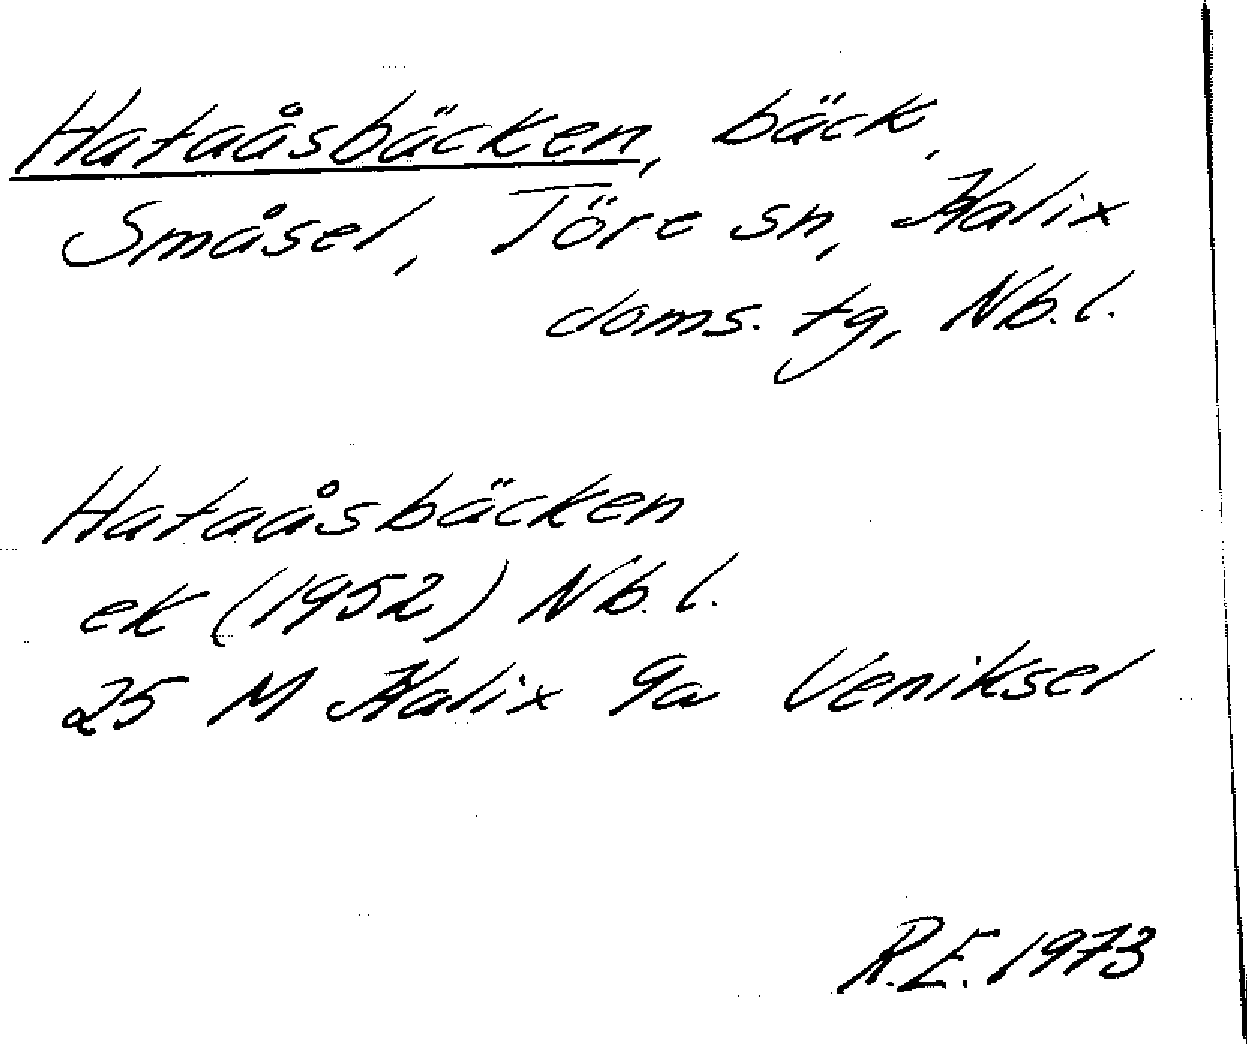 Hataåsbäcken, bäck,
Småsel, Töre sn, Kalix
doms. tg, Nb. l.
Hataåsbäcken
ek (1952) Nb. l.
25 M Kalix 9a Veniksel
R.E. 1973